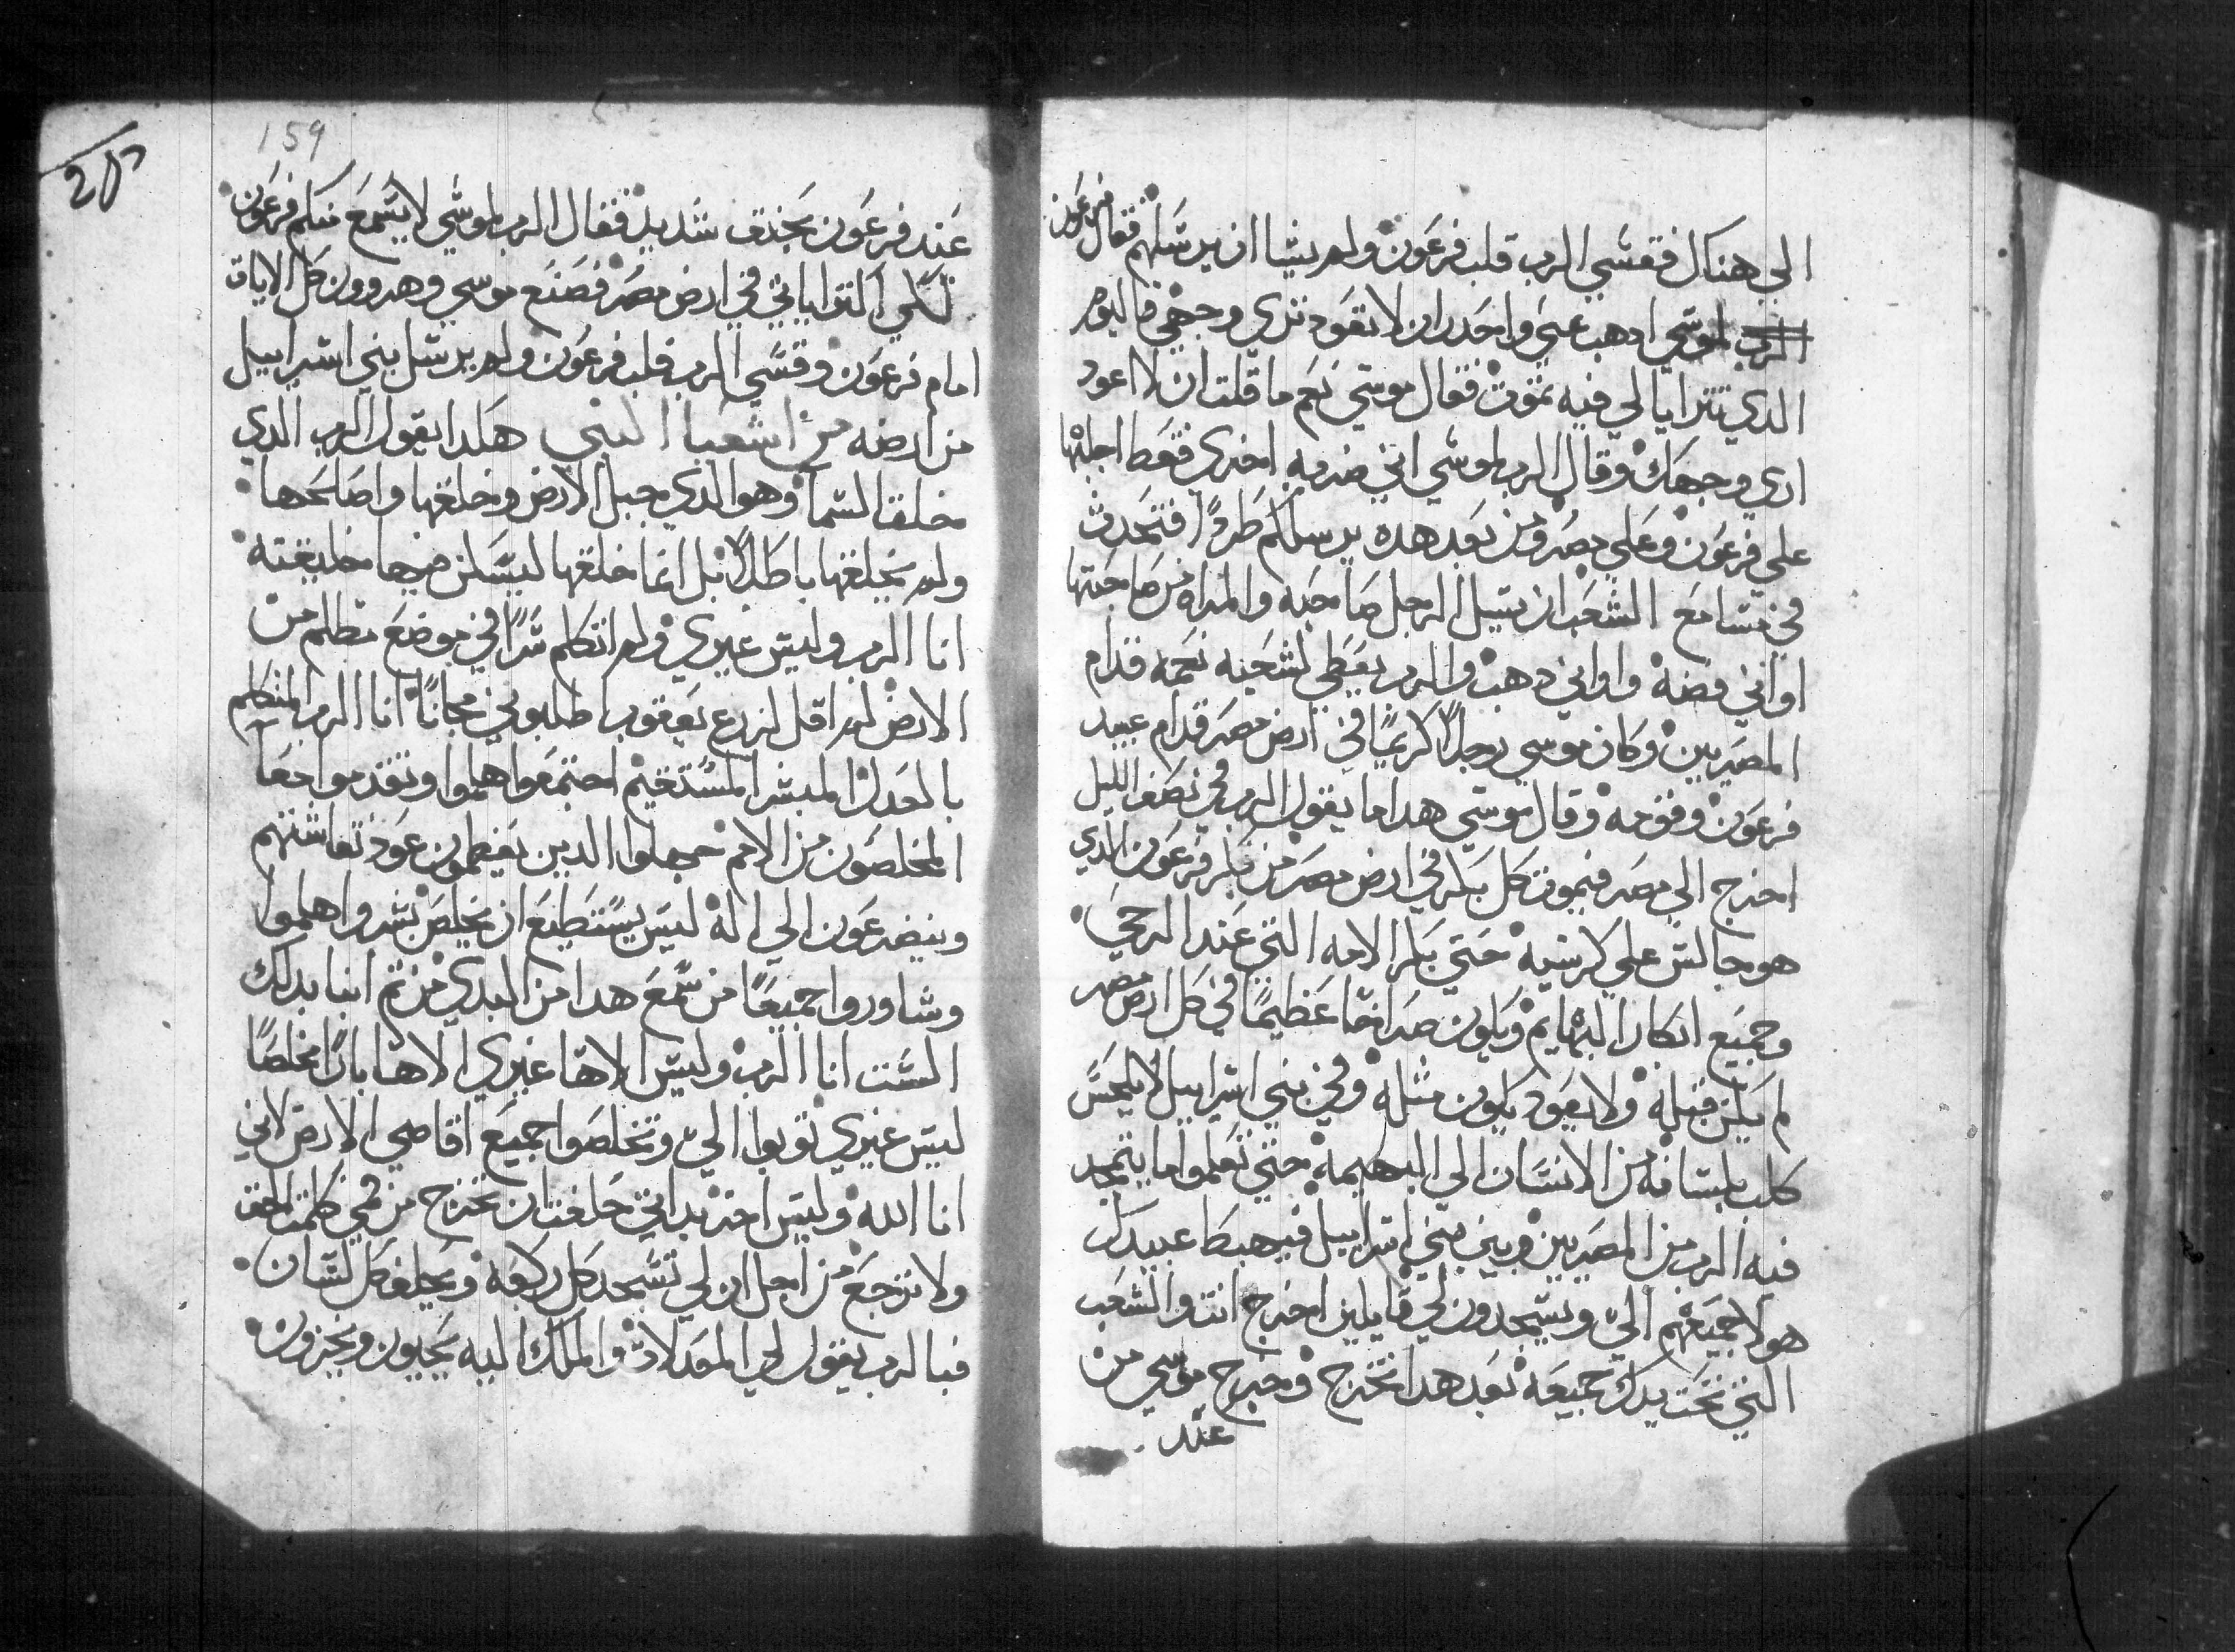 الي هناك فقسي الرب قلب فرعون ولم يشا ان يرسلهم فقال فرعون
الرب لموسي ادهب عني واحدر ان لا تعود تري وجهي فاليوم
الدي تترايا لي فيه تموت فقال موسي نعم ما قلت ان لا اعود
اري وجهك وقال الرب لموسي اني ضربه اخري فقط اجلبها
علي فرعون وعلي مصر ومن بعد هده يرسلكم طردًا فتحدث
في مسامع الشعب ان يسيل الرجل صاحبه والمراه من صاحبتها
اواني فضه واواني دهب والرب يعطي لشعبه نعمه قدام
المصريين وكان موسي رجلاً كريمًا في ارض مصر قدام عبيد
فرعون وقومه وقال موسي هدا ما يقول الرب في نصف الليل
اخرج الي مصر فيموت كل بكر في ارض مصر من بكر فرعون الدي
هو جالس علي كرسيه حتي بكر الامه التي عند الرحي
وجميع ابكار البهايم ويكون صراخًا عظيمًا في كل ارض مصر
لم يكن قبله ولا يعود يكون مثله وفي بني اسراييل لا يلحس
كلب بلسانه من الانسان الي البهيمه حتي تعلموا ما يتمجد
فيه الرب من المصريين وبين بني اسراييل فيهبط عبيدك
هولا جميعهم الي ويسجدون لي قايلين اخرج انت والشعب
التي تحت يدك جميعه بعد هدا تخرج وخرج موسي من
عند
159
عند فرعون بحنق شديد فقال الرب لموسي لا يسمع منكم فرعون
لكي اكثر اياتي في ارض مصر فصنع موسي وهرون كل الايات
امام فرعون وقسي الرب قلب فرعون ولم يرسل بني اسراييل
من ارضه من اشعيا النبي هكدا يقول الرب الدي
خلق السما وهو الدي جبل الارض وخلقها واصلحها
ولم يخلقها باطلاً بل انما خلقها ليسكن فيها خليقته
انا الرب وليس غيري ولم اتكلم سرًا في موضع مظلم من
الارض لم اقل لزرع يعقوب اطلبوني مجانًا انا الرب المتكلم
بالعدل المبشر المستقيم اجتمعوا هلموا وتقدموا معًا
المخلصون من الامم جهلوا الدين يعظمون عود نقاشتهم
ويتضرعون الي اله ليس يستطيع ان يخلص بشروا هلموا
وشاوروا جميعًا من سمع هدا من البدي من ثم انبا بدلك
الست انا الرب وليس الاهًا غيري الاهًا بارًا مخلصًا
ليس غيري توبوا الي وتخلصوا جميع اقاصي الارض لاني
انا الله وليس اخر بداتي حلفت ان تخرج من فمي كلمة الحق
ولا ترجع من اجل ان لي تسجد كل ركبه ويحلف كل لسان
فبالرب يقول لي العدلات والملك اليه يجيون ويخزون